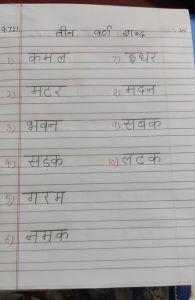 तीन वर्ण शब्द
1) कमल
2) मटर
3) भवन
4) सड़क
5) गरम
6) नमक
7) इधर
8) मदन
9) सबक
10) लटक